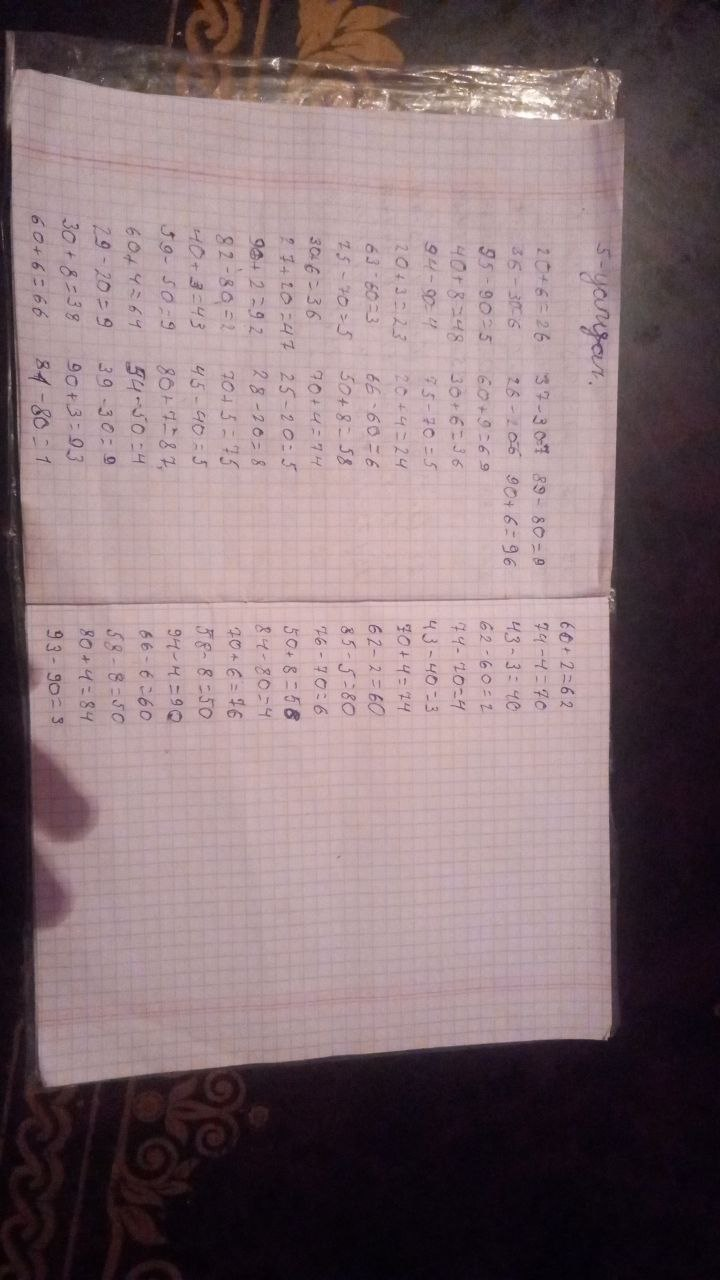 20+6=26 37-30=7 89-80=9
36-30=6 26-20=6 90+6=96
95-90=5 60+9=69
40+8=48 30+6=36
94-90=4 75-70=5
20+3=23 20+4=24
63-60=3 66-60=6
75-70=5 50+8=58
30+6=36 70+4=74
27+20=47 25-20=5
90+2=92 28-20=8
82-80=2 70+5=75
40+3=43 45-40=5
59-50=9 80+7=87
60+4=64 54-50=4
29-20=9 39-30=9
30+8=38 90+3=93
60+6=66 81-80=1
60+2=62
74-4=70
43-3=40
62-60=2
74-70=4
43-40=3
70+4=74
62-2=60
85-5=80
76-70=6
50+8=58
84-80=4
70+6=76
58-8=50
94-4=90
66-6=60
58-8=50
80+4=84
93-90=3